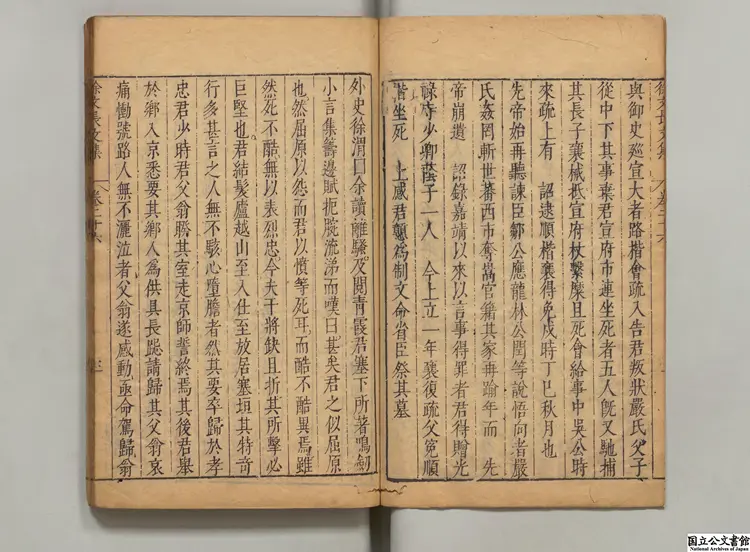 與御史巡宣大者路楷會疏入告君叛狀嚴氏父子
從中下其事棄君宣府市連坐死者五人既又馳捕
其長子襄械抵宣府杖繫糜且死會給事中吳公時
來疏上有 詔逮順楷襄得免戍時丁巳秋月也
先帝始再聽諫臣鄒公應龍林公閏等說悟向者嚴
氏姦罔斬世蕃西市奪嵩官籍其家再踰年而 先
帝崩遺 詔錄嘉靖以來以言事得罪者君得贈光
祿寺少卿蔭子一人 今上立一年襄復疏父冤順
楷坐死 上感君懇爲制文命省臣祭其墓
外史徐渭曰余讀離騷及閱青霞君塞下所著鳴劍
小言集籌邊賦扼腕流涕而嘆曰甚矣君之似屈原
也然屈原以怨而君以憤等死耳而酷不酷異焉雖
然死不酷無以表烈忠今夫干將缺且折其所擊必
巨堅也君結髮廬越山至入仕至放居塞垣其特奇
行多甚言之人無不駭心墮膽者然其要卒歸於孝
忠君少時君父翁勝其室走京師誓終焉其後君舉
於鄉入京悉要其鄉人爲供具長跽請歸其父翁哀
痛慟號路人無不灑泣者父翁遂感動亟命駕歸翁
徐文長文集
卷二十六
徐文長文集
卷二十六
国立公文書館
National Archives of Japan